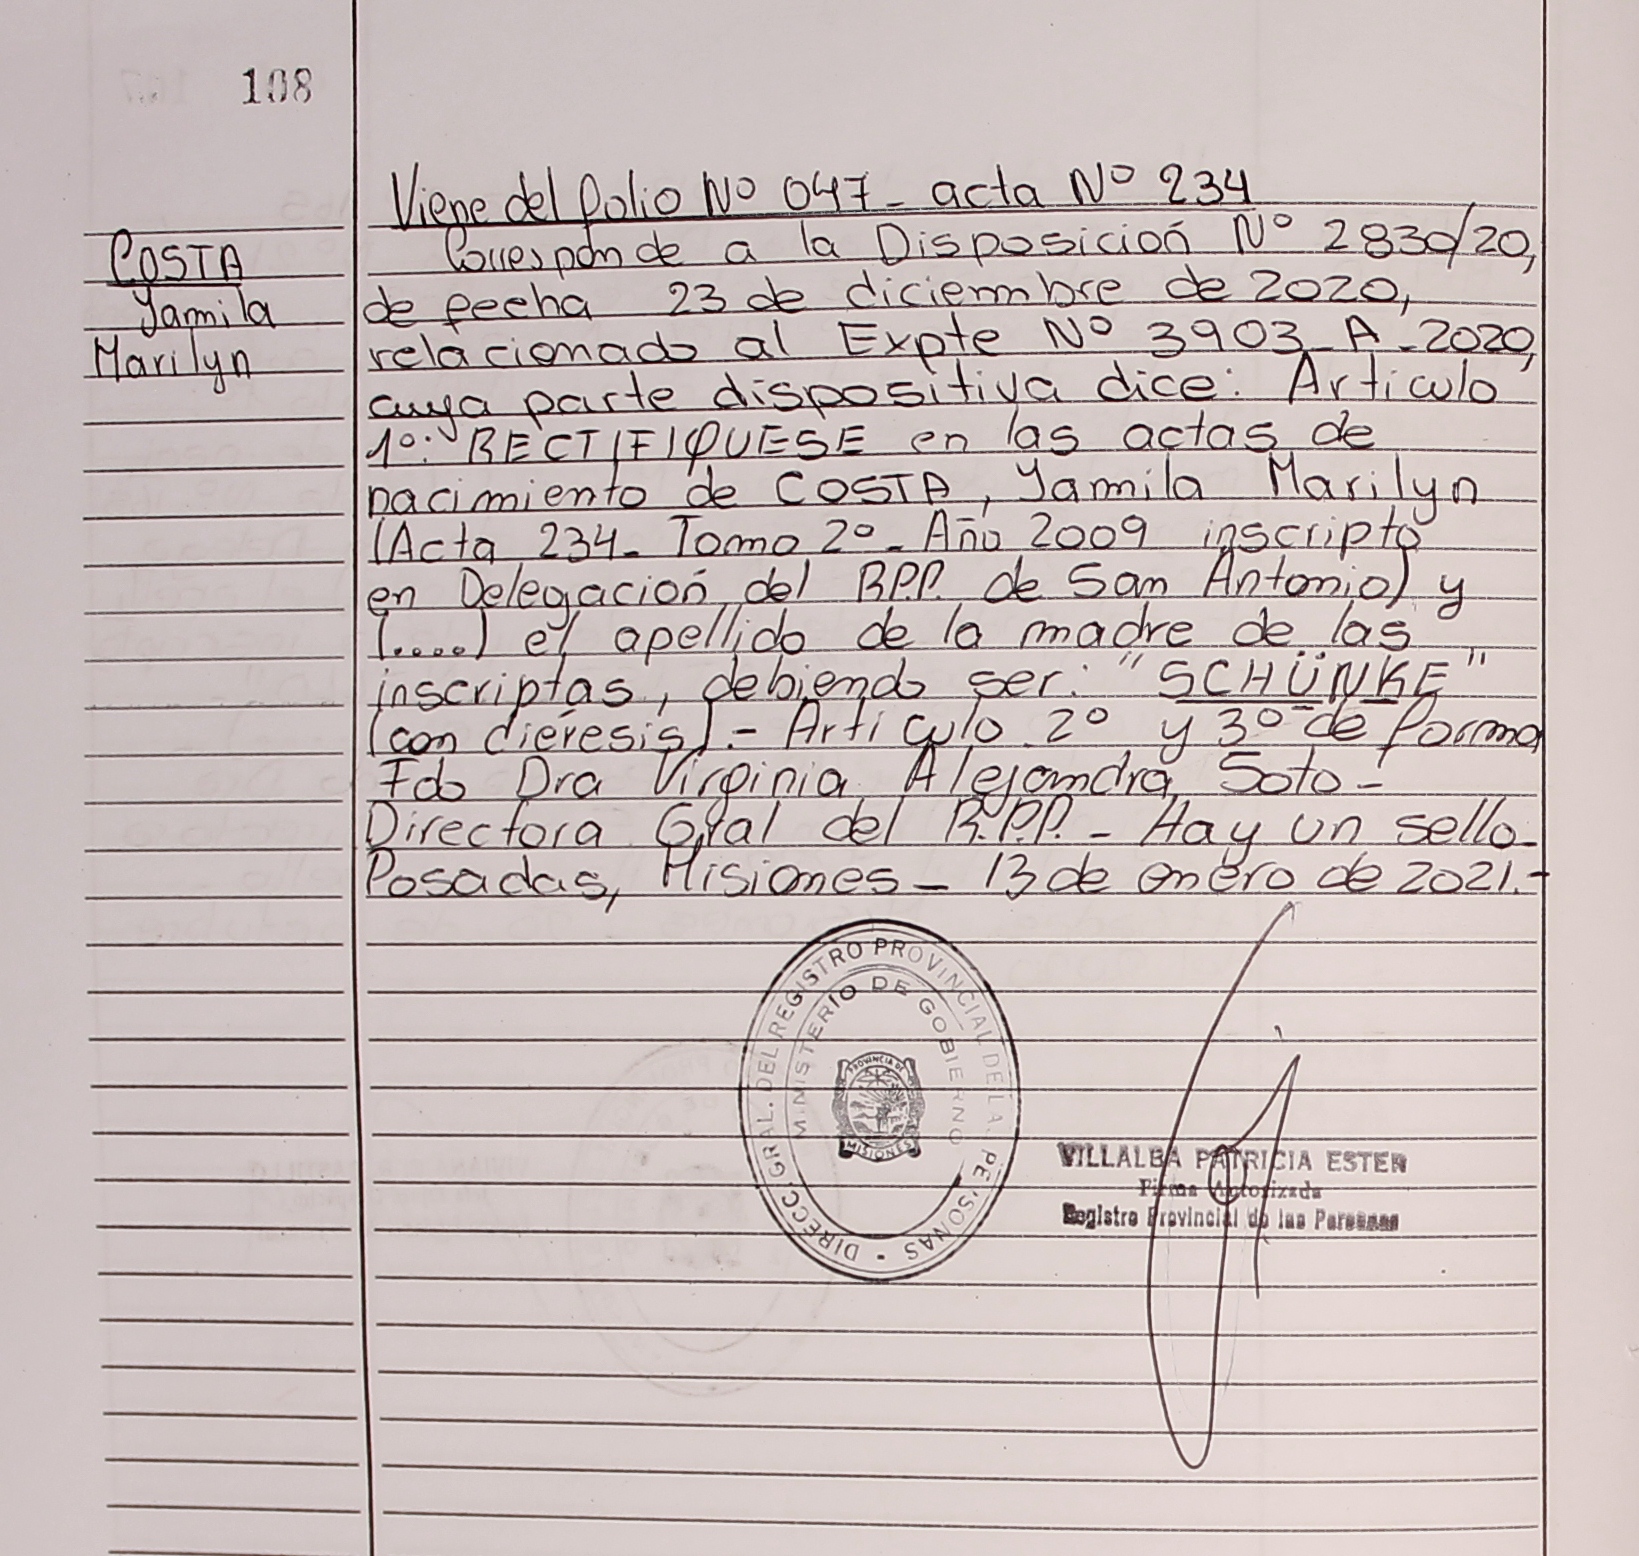 108
Viene del folio Nº 047 - acta Nº 234
COSTA
Yamila
Marilyn
Corresponde a la Disposición Nº 2830/20,
de fecha 23 de diciembre de 2020,
relacionado al Expte Nº 3903 - A - 2020,
cuya parte dispositiva dice: Artículo
1º: RECTIFIQUESE en las actas de
nacimiento de COSTA, Yamila Marilyn
(Acta 234 - Tomo 2º - Año 2009 inscripto
en Delegación del R.P.P. de San Antonio) y
(....) el apellido de la madre de las
inscriptas, debiendo ser: "SCHÜNKE"
(con diéresis).- Artículo 2º y 3º de forma
Fdo Dra Virginia Alejandra Soto -
Directora Gral del R.P.P. - Hay un sello -
Posadas, Misiones - 13 de enero de 2021.-
DIRECC. GRAL. DEL REGISTRO PROVINCIAL DE LA PE SONAS
MINISTERIO DE GOBIERNO
PROVINCIA DE
MISIONES
VILLALBA PATRICIA ESTER
Firma Autorizada
Registro Provincial de las Personas